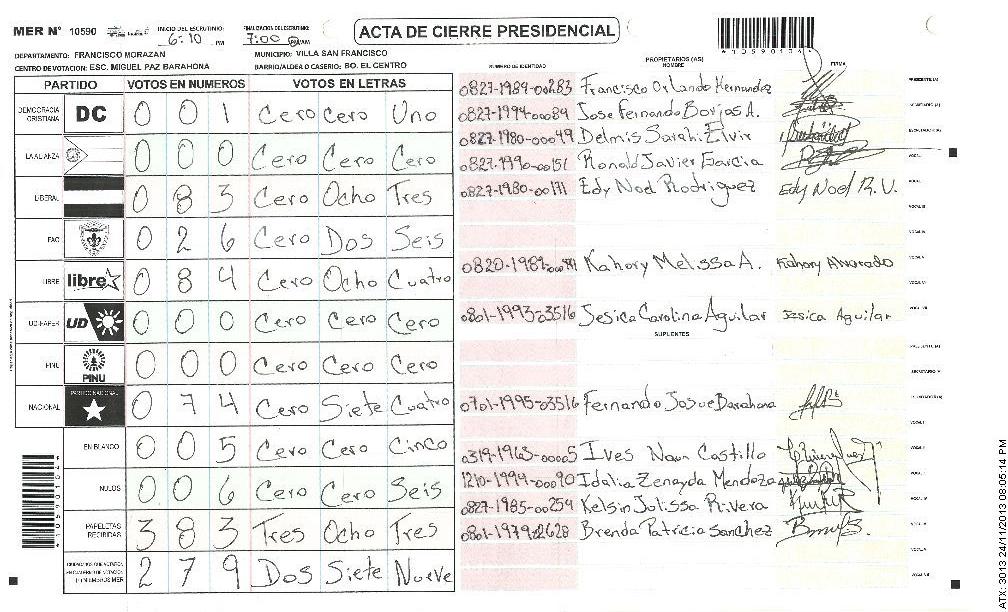 MER N° 10590 INICIO DEL ESCRUTINIO: 6:10 PM FINALIZACION DEL ESCRUTINIO: 7:00 PM/AM ACTA DE CIERRE PRESIDENCIAL
DEPARTAMENTO: FRANCISCO MORAZAN MUNICIPIO: VILLA SAN FRANCISCO
CENTRO DE VOTACION: ESC. MIGUEL PAZ BARAHONA BARRIO/ALDEA O CASERIO: BO. EL CENTRO
PARTIDO VOTOS EN NUMEROS VOTOS EN LETRAS
DEMOCRACIA CRISTIANA DC 0 0 1 Cero Cero Uno
LA ALIANZA 0 0 0 Cero Cero Cero
LIBERAL 0 8 3 Cero Ocho Tres
FAO 0 2 6 Cero Dos Seis
LIBRE libre 0 8 4 Cero Ocho Cuatro
UD-FAPER UD 0 0 0 Cero Cero Cero
PINU PINU 0 0 0 Cero Cero Cero
NACIONAL PARTIDO NACIONAL 0 7 4 Cero Siete Cuatro
EN BLANCO 0 0 5 Cero Cero Cinco
NULOS 0 0 6 Cero Cero Seis
PAPELETAS RECIBIDAS 3 8 3 Tres Ocho Tres
2 7 9 Dos Siete Nueve
NUMERO DE IDENTIDAD PROPIETARIOS (AS) NOMBRE FIRMA
0827-1989-00283 Francisco Orlando Hernandez PRESIDENTE (A)
0827-1994-00084 Jose Fernando Borjas A. SECRETARIO (A)
0827-1980-00049 Delmis Sarahi Elvir ESCRUTADOR (A)
0827-1990-00151 Ronald Javier Garcia
0827-1980-00171 Edy Noel Rodriguez Edy Noel R. V.
Kahory Melissa A. Kahory Alvarado
0801-1993-03516 Jesica Carolina Aguilar Jesica Aguilar
SUPLENTES
0701-1995-03516 Fernando Josue Barahona
0319-1963-00005 Ives Naun Castillo
1210-1994-00090 Idalia Zenayda Mendoza
0827-1985-00254 Kelsin Julissa Rivera
Brenda Patricia Sanchez
*10590104*
ATX: 3013 24/11/2013 08:05:14 PM